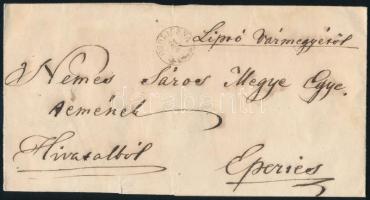 Liptó Vármegyétől
Nemes Sáros Megye Egye-
temének
Hivatalból
Eperies